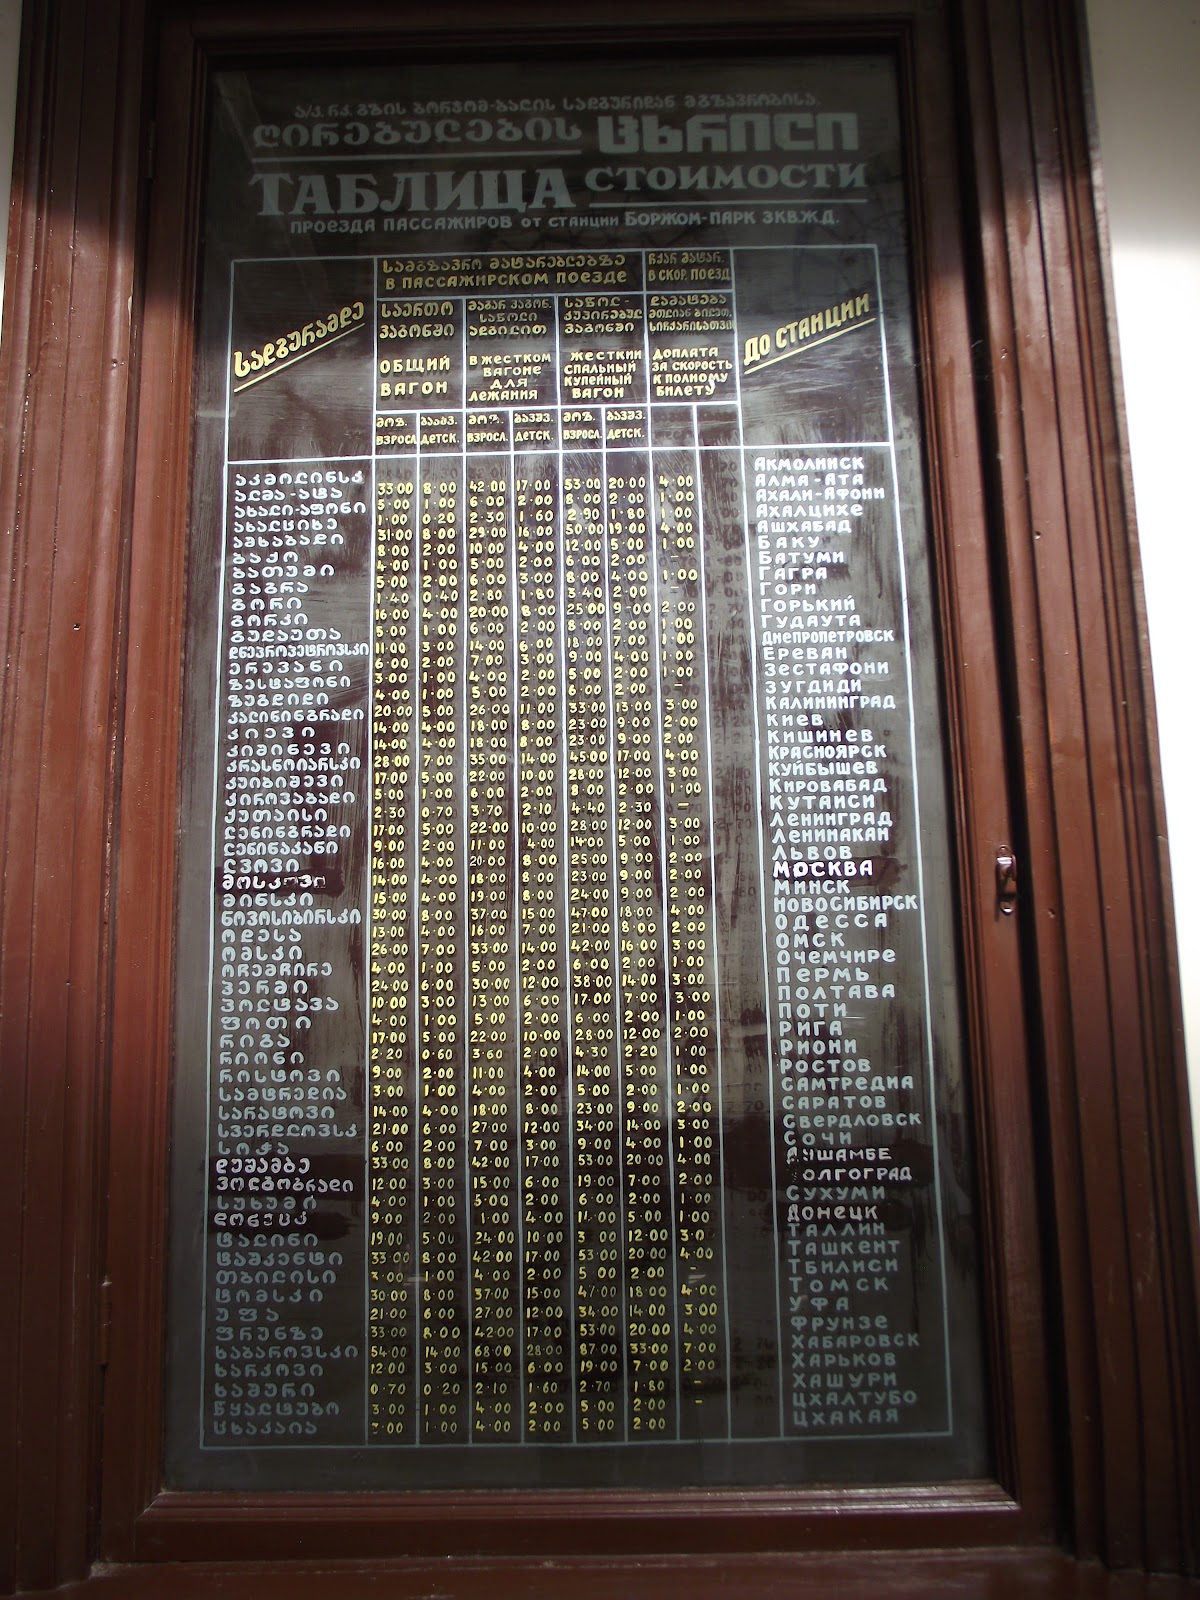 ა/კ. რკ. გზის ბორჯომ-ბაღის სადგურიდან მგზავრობისა.
ღირებულების ცხრილი
ТАБЛИЦА СТОИМОСТИ
ПРОЕЗДА ПАССАЖИРОВ ОТ СТАНЦИИ БОРЖОМ-ПАРК ЗКВЖД.
სადგურამდე
სამგზავრო მატარებლებზე
В ПАССАЖИРСКОМ ПОЕЗДЕ
ჩქარ მატარ.
В СКОР. ПОЕЗД
ДО СТАНЦИИ
საერთო ვაგონში
ОБЩИЙ ВАГОН
მაგარ ვაგონ. საწოლი ადგილით
В ЖЕСТКОМ ВАГОНЕ ДЛЯ ЛЕЖАНИЯ
საწოლ-კუპირებულ ვაგონში
ЖЕСТКИЙ СПАЛЬНЫЙ КУПЕЙНЫЙ ВАГОН
დამატება მთლიან ბილეთ. სიჩქარისათვის
ДОПЛАТА ЗА СКОРОСТЬ К ПОЛНОМУ БИЛЕТУ
მოზ. ბავშვ. მოზ. ბავშვ. მოზ. ბავშვ.
ВЗРОСЛ. ДЕТСК. ВЗРОСЛ. ДЕТСК. ВЗРОСЛ. ДЕТСК.
აკმოლინსკ АКМОЛИНСК
ალმა-ატა 33·00 8·00 42·00 17·00 53·00 20·00 4·00 АЛМА-АТА
ახალი-აფონი 5·00 1·00 6·00 2·00 8·00 2·00 1·00 АХАЛИ-АФОНИ
ახალციხე 1·00 0·20 2·30 1·60 2·90 1·80 1·00 АХАЛЦИХЕ
აშხაბადი 31·00 8·00 29·00 16·00 50·00 19·00 4·00 АШХАБАД
ბაქო 8·00 2·00 10·00 4·00 12·00 5·00 1·00 БАКУ
ბათუმი 4·00 1·00 5·00 2·00 6·00 2·00 – БАТУМИ
გაგრა 5·00 2·00 6·00 3·00 8·00 4·00 1·00 ГАГРА
გორი 1·40 0·40 2·80 1·80 3·40 2·00 – ГОРИ
გორკი 16·00 4·00 20·00 8·00 25·00 9·00 2·00 ГОРЬКИЙ
გუდაუთა 5·00 1·00 6·00 2·00 8·00 2·00 1·00 ГУДАУТА
დნეპროპეტროვსკი 11·00 3·00 14·00 6·00 18·00 7·00 1·00 ДНЕПРОПЕТРОВСК
ერევანი 6·00 2·00 7·00 3·00 9·00 4·00 1·00 ЕРЕВАН
ზესტაფონი 3·00 1·00 4·00 2·00 5·00 2·00 1·00 ЗЕСТАФОНИ
ზუგდიდი 4·00 1·00 5·00 2·00 6·00 2·00 – ЗУГДИДИ
კალინინგრადი 20·00 5·00 26·00 11·00 33·00 13·00 3·00 КАЛИНИНГРАД
კიევი 14·00 4·00 18·00 8·00 23·00 9·00 2·00 КИЕВ
კიშინევი 14·00 4·00 18·00 8·00 23·00 9·00 2·00 КИШИНЕВ
კრასნოიარსკი 28·00 7·00 35·00 14·00 45·00 17·00 4·00 КРАСНОЯРСК
კუიბიშევი 17·00 5·00 22·00 10·00 28·00 12·00 3·00 КУЙБЫШЕВ
კიროვაბადი 5·00 1·00 6·00 2·00 8·00 2·00 1·00 КИРОВАБАД
ქუთაისი 2·30 0·70 3·70 2·10 4·40 2·30 – КУТАИСИ
ლენინგრადი 17·00 5·00 22·00 10·00 28·00 12·00 3·00 ЛЕНИНГРАД
ლენინაკანი 9·00 2·00 11·00 4·00 14·00 5·00 1·00 ЛЕНИНАКАН
ლვოვი 16·00 4·00 20·00 8·00 25·00 9·00 2·00 ЛЬВОВ
მოსკოვი 14·00 4·00 18·00 8·00 23·00 9·00 2·00 МОСКВА
მინსკი 15·00 4·00 19·00 8·00 24·00 9·00 2·00 МИНСК
ნოვოსიბირსკი 30·00 8·00 37·00 15·00 47·00 18·00 4·00 НОВОСИБИРСК
ოდესა 13·00 4·00 16·00 7·00 21·00 8·00 2·00 ОДЕССА
ომსკი 26·00 7·00 33·00 14·00 42·00 16·00 3·00 ОМСК
ოჩემჩირე 4·00 1·00 5·00 2·00 6·00 2·00 1·00 ОЧЕМЧИРЕ
პერმი 24·00 6·00 30·00 12·00 38·00 14·00 3·00 ПЕРМЬ
პოლტავა 10·00 3·00 13·00 6·00 17·00 7·00 3·00 ПОЛТАВА
ფოთი 4·00 1·00 5·00 2·00 6·00 2·00 1·00 ПОТИ
რიგა 17·00 5·00 22·00 10·00 28·00 12·00 2·00 РИГА
რიონი 2·20 0·60 3·60 2·00 4·30 2·20 1·00 РИОНИ
როსტოვი 9·00 2·00 11·00 4·00 14·00 5·00 1·00 РОСТОВ
სამტრედია 3·00 1·00 4·00 2·00 5·00 2·00 1·00 САМТРЕДИА
სარატოვი 14·00 4·00 18·00 8·00 23·00 9·00 2·00 САРАТОВ
სვერდლოვსკ 21·00 6·00 27·00 12·00 34·00 14·00 3·00 СВЕРДЛОВСК
სოჭა 6·00 2·00 7·00 3·00 9·00 4·00 1·00 СОЧИ
დუშამბე 33·00 8·00 42·00 17·00 53·00 20·00 4·00 ДУШАМБЕ
ვოლგოგრადი 12·00 3·00 15·00 6·00 19·00 7·00 2·00 ОЛГОГРАД
სუხუმი 4·00 1·00 5·00 2·00 6·00 2·00 1·00 СУХУМИ
დონეცკ 9·00 2·00 1·00 4·00 5·00 1·00 ДОНЕЦК
ტალინი 19·00 5·00 24·00 10·00 12·00 ТАЛЛИН
ტაშკენტი 33·00 8·00 42·00 17·00 53·00 20·00 4·00 ТАШКЕНТ
თბილისი 3·00 1·00 4·00 2·00 5·00 2·00 – ТБИЛИСИ
ტომსკი 30·00 8·00 37·00 15·00 47·00 18·00 4·00 ТОМСК
უფა 21·00 6·00 27·00 12·00 34·00 14·00 3·00 УФА
ფრუნზე 33·00 8·00 42·00 17·00 53·00 20·00 4·00 ФРУНЗЕ
ხაბაროვსკი 54·00 14·00 68·00 28·00 87·00 33·00 7·00 ХАБАРОВСК
ხარკოვი 12·00 3·00 15·00 6·00 19·00 7·00 2·00 ХАРЬКОВ
ხაშური 0·70 0·20 2·10 1·60 2·70 1·80 – ХАШУРИ
წყალტუბო 3·00 1·00 4·00 2·00 5·00 2·00 – ЦХАЛТУБО
ცხაკაია 3·00 1·00 4·00 2·00 5·00 2·00 ЦХАКАЯ